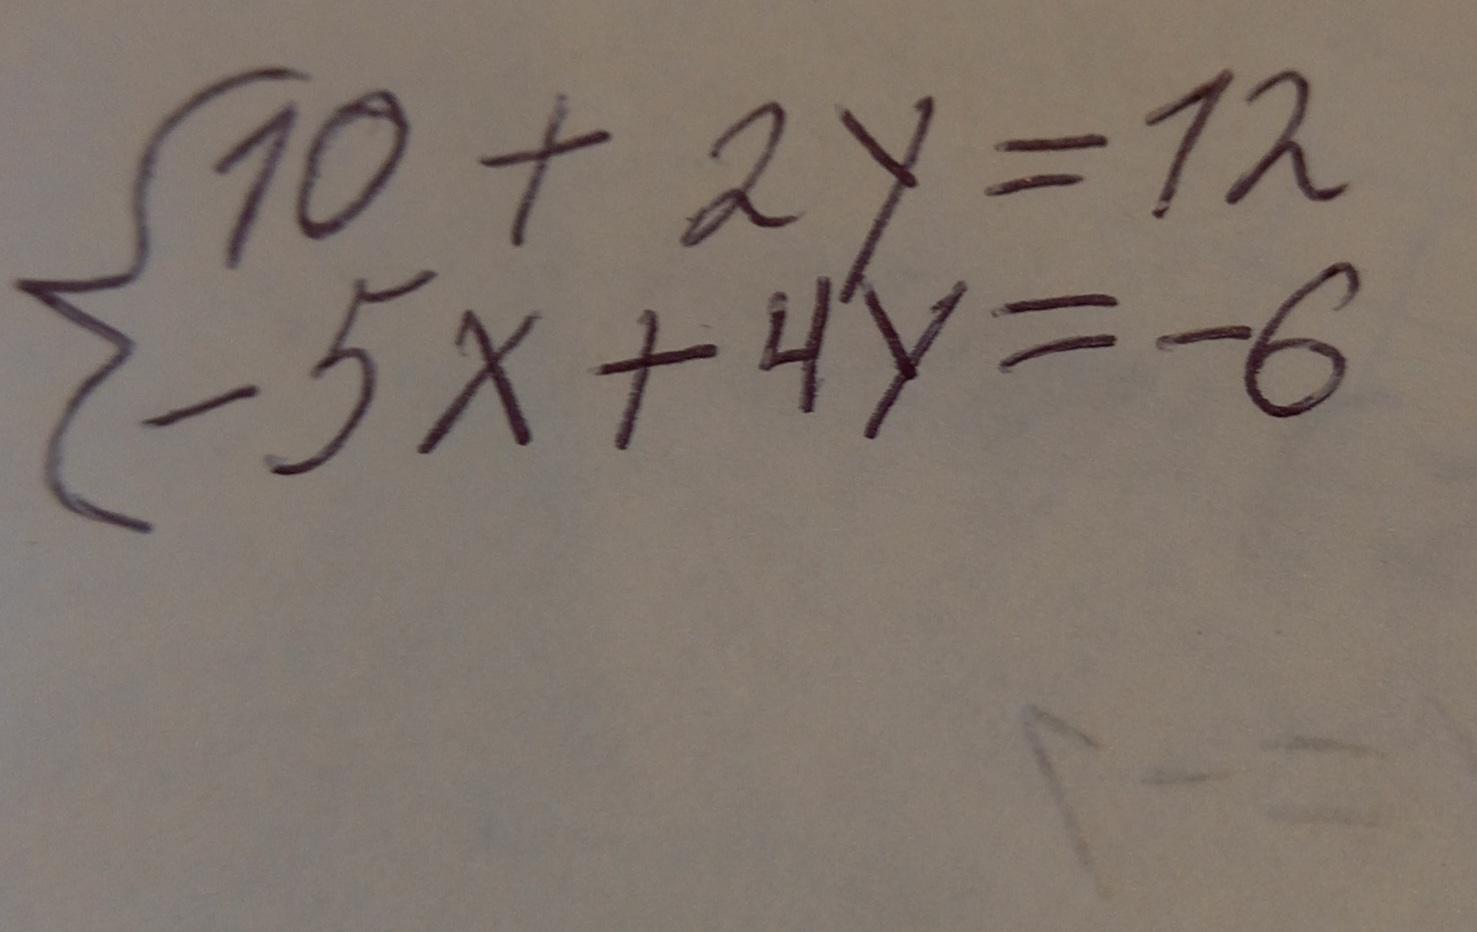 10 + 2y = 12
-5x + 4y = -6